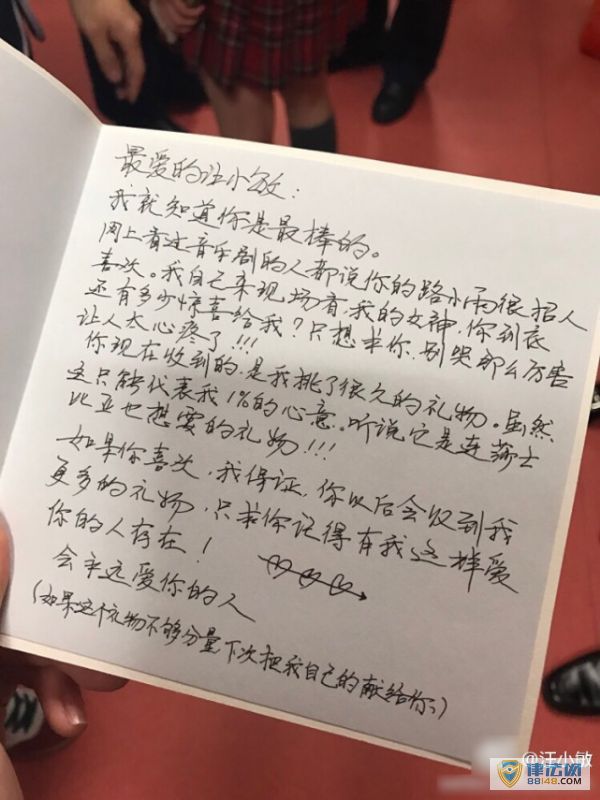 最爱的汪小敏：
我就知道你是最棒的。
网上看过音乐剧的人都说你的路小雨很招人
喜欢。我自己来现场看，我的女神，你到底
还有多少惊喜给我？只想告你，别哭那么厉害
让人太心疼了！！！
你现在收到的，是我挑了很久的礼物。虽然
这只能代表我1%的心意。听说它是连莎士
比亚也想要的礼物！！！
如果你喜欢，我保证，你以后会收到我
更多的礼物，只求你记得有我这样爱
你的人存在！
会永远爱你的人
（如果这个礼物不够分量下次把我自己的献给你:)）
@汪小敏
律法网
88148.COM